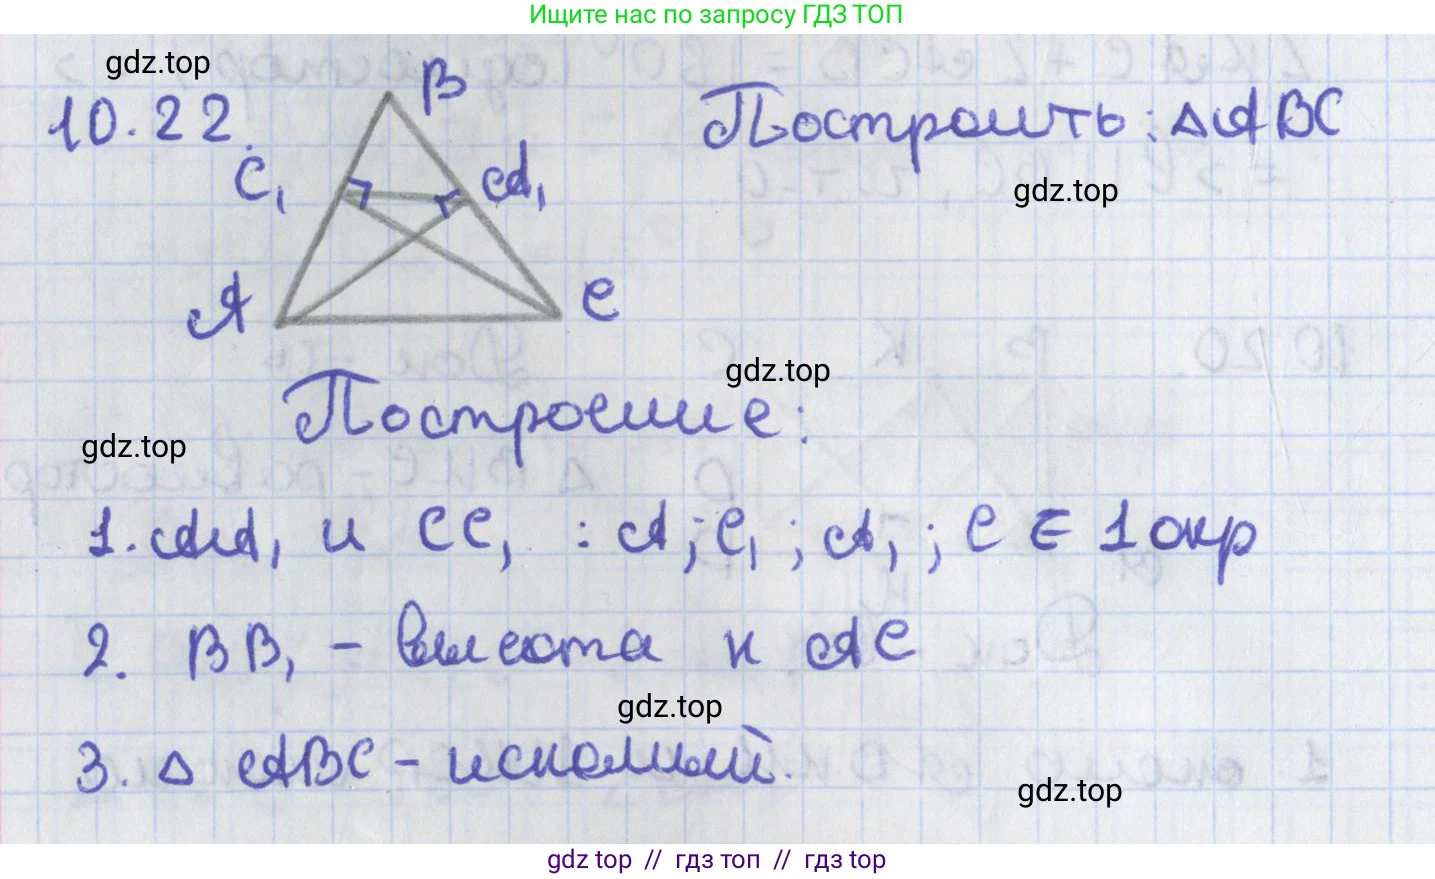 Ищите нас по запросу ГДЗ ТОП
gdz.top
10.22.
B
Построить: △ABC
C₁
A₁
gdz.top
A
C
gdz.top
Построение:
gdz.top
1. AA₁ и CC₁ : A; C₁; A₁; C ∈ 1 окр
2. BB₁ – высота к AC
gdz.top
3. △ ABC – искомый.
gdz.top
gdz top // гдз топ // гдз top